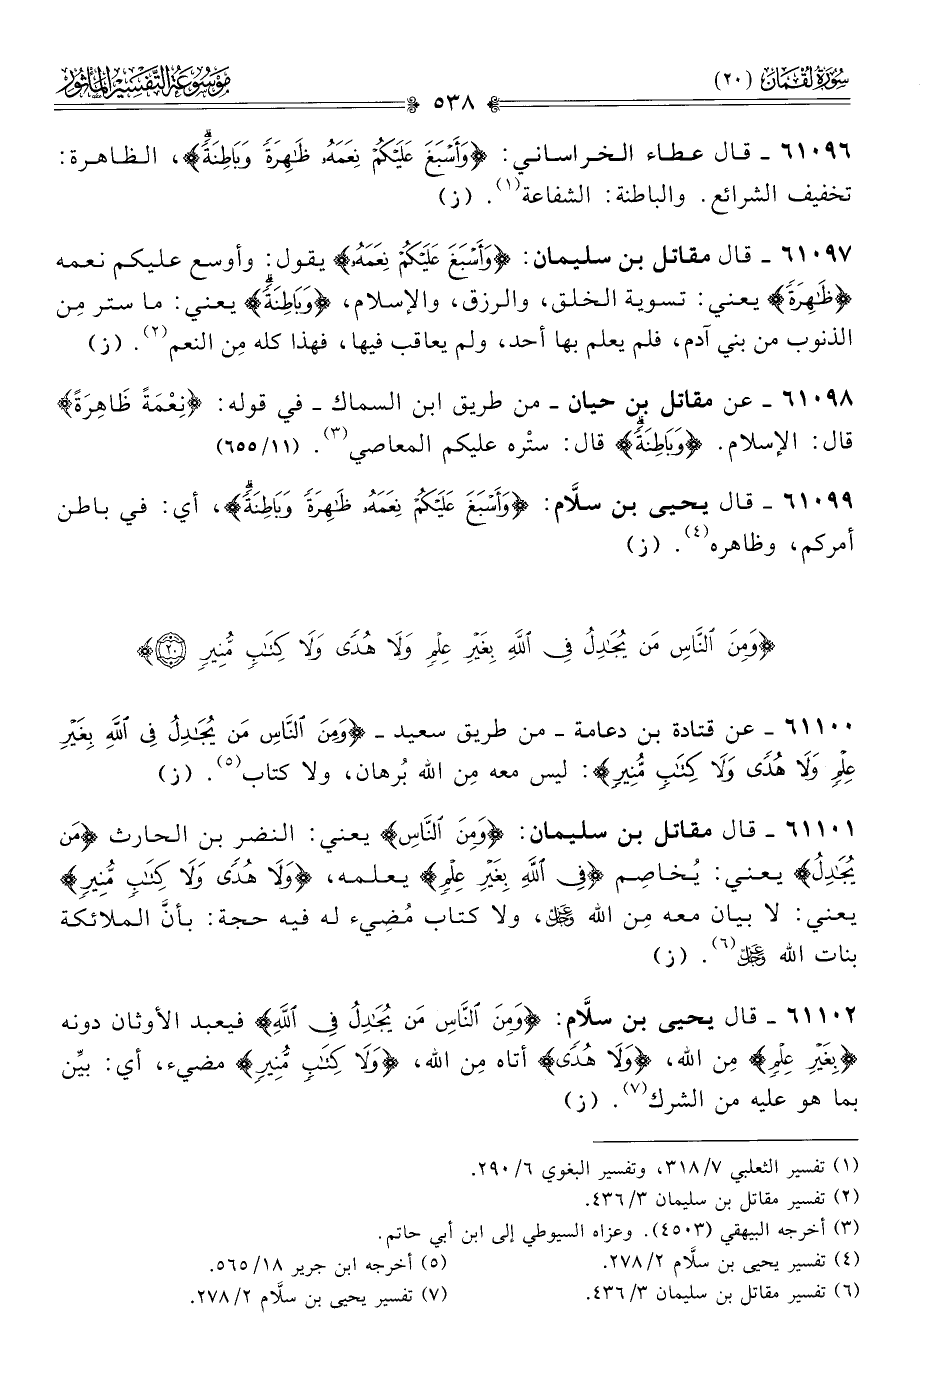 سُورَةُ لُقْمَان (٢٠)
مَوْسُوعَةُ التَّفْسِيرِ المَأْثُور
٥٣٨
٦١٠٩٦ ـ قال عطاء الخراساني: ﴿وَأَسْبَغَ عَلَيْكُمْ نِعَمَهُۥ ظَٰهِرَةً وَبَاطِنَةًۗ﴾، الظاهرة:
تخفيف الشرائع. والباطنة: الشفاعة(١). (ز)
٦١٠٩٧ ـ قال مقاتل بن سليمان: ﴿وَأَسْبَغَ عَلَيْكُمْ نِعَمَهُۥ﴾ يقول: وأوسع عليكم نعمه
﴿ظَٰهِرَةً﴾ يعني: تسوية الخلق، والرزق، والإسلام، ﴿وَبَاطِنَةًۗ﴾ يعني: ما ستر مِن
الذنوب من بني آدم، فلم يعلم بها أحد، ولم يعاقب فيها، فهذا كله مِن النعم(٢). (ز)
٦١٠٩٨ ـ عن مقاتل بن حيان ـ من طريق ابن السماك ـ في قوله: ﴿نِعْمَةً ظَاهِرَةً﴾
قال: الإسلام. ﴿وَبَاطِنَةًۗ﴾ قال: ستْره عليكم المعاصي(٣). (٦٥٥/١١)
٦١٠٩٩ ـ قال يحيى بن سلَّام: ﴿وَأَسْبَغَ عَلَيْكُمْ نِعَمَهُۥ ظَٰهِرَةً وَبَاطِنَةًۗ﴾، أي: في باطن
أمركم، وظاهره(٤). (ز)
﴿وَمِنَ ٱلنَّاسِ مَن يُجَٰدِلُ فِى ٱللَّهِ بِغَيْرِ عِلْمٍ وَلَا هُدًى وَلَا كِتَٰبٍ مُّنِيرٍ ٢٠﴾
٦١١٠٠ ـ عن قتادة بن دعامة ـ من طريق سعيد ـ ﴿وَمِنَ ٱلنَّاسِ مَن يُجَٰدِلُ فِى ٱللَّهِ بِغَيْرِ
عِلْمٍ وَلَا هُدًى وَلَا كِتَٰبٍ مُّنِيرٍ﴾: ليس معه مِن الله بُرهان، ولا كتاب(٥). (ز)
٦١١٠١ ـ قال مقاتل بن سليمان: ﴿وَمِنَ ٱلنَّاسِ﴾ يعني: النضر بن الحارث ﴿مَن
يُجَٰدِلُ﴾ يعني: يُخاصِم ﴿فِى ٱللَّهِ بِغَيْرِ عِلْمٍ﴾ يعلمه، ﴿وَلَا هُدًى وَلَا كِتَٰبٍ مُّنِيرٍ﴾
يعني: لا بيان معه مِن الله ﷿، ولا كتاب مُضيء له فيه حجة: بأنَّ الملائكة
بنات الله ﷿(٦). (ز)
٦١١٠٢ ـ قال يحيى بن سلَّام: ﴿وَمِنَ ٱلنَّاسِ مَن يُجَٰدِلُ فِى ٱللَّهِ﴾ فيعبد الأوثان دونه
﴿بِغَيْرِ عِلْمٍ﴾ مِن الله، ﴿وَلَا هُدًى﴾ أتاه مِن الله، ﴿وَلَا كِتَٰبٍ مُّنِيرٍ﴾ مضيء، أي: بيِّن
بما هو عليه من الشرك(٧). (ز)
(١) تفسير الثعلبي ٣١٨/٧، وتفسير البغوي ٢٩٠/٦.
(٢) تفسير مقاتل بن سليمان ٤٣٦/٣.
(٣) أخرجه البيهقي (٤٥٠٣). وعزاه السيوطي إلى ابن أبي حاتم.
(٤) تفسير يحيى بن سلَّام ٢٧٨/٢. (٥) أخرجه ابن جرير ٥٦٥/١٨.
(٦) تفسير مقاتل بن سليمان ٤٣٦/٣. (٧) تفسير يحيى بن سلَّام ٢٧٨/٢.